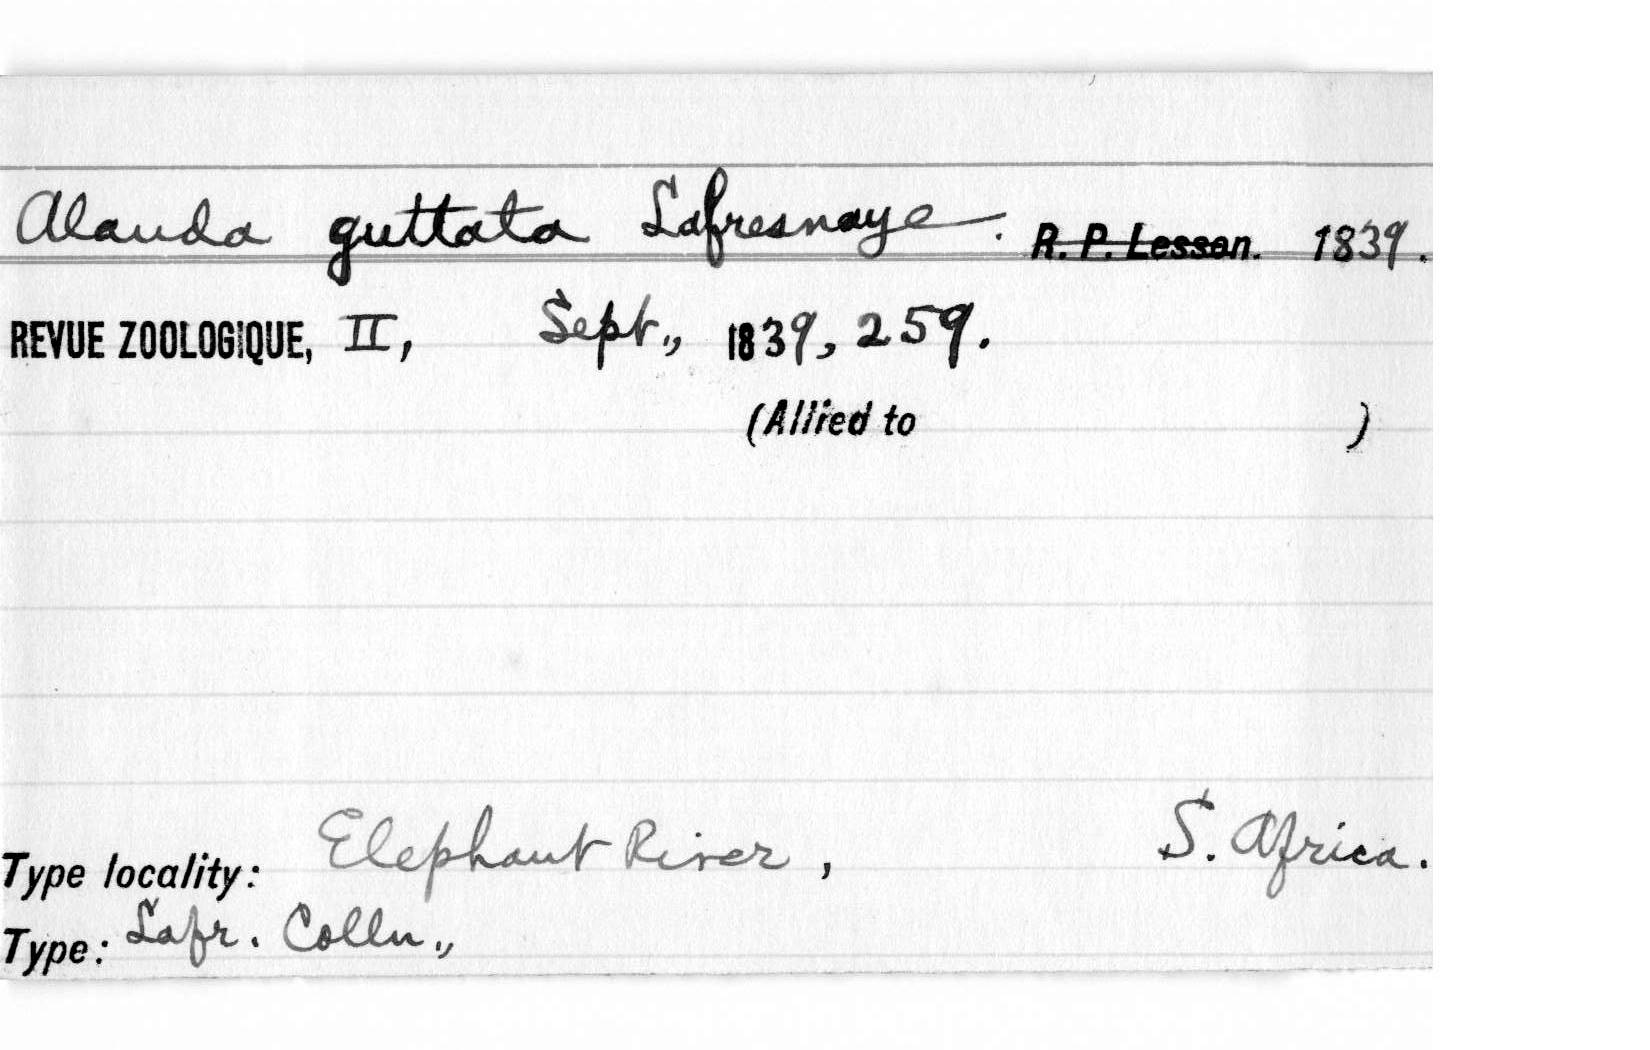 Alauda guttata Lafresnaye. R. P. Lesson. 1839.
REVUE ZOOLOGIQUE, II, Sept., 1839, 259.
(Allied to )
Type locality: Elephant River, S. Africa.
Type: Lafr. Colln.,